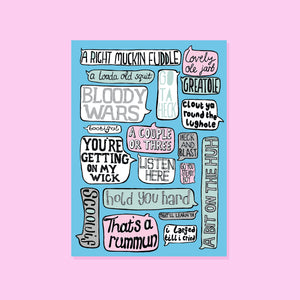 A RIGHT MUCKIN FUDDLE
Lovely
ole jarb
a loada old squit
GREAT OLE
BLOODY
WARS
clout ya
round the
lughole
bootiful
A COUPLE
OR THREE
HECK
AND
BLAST
YOU'RE
GETTING
ON MY
WICK
LISTEN
HERE
A BIT ON THE HUH
hold you hard
SQUALLY
THAT'LL LEARN YA
That's a
rummun
i larfed
till i cried